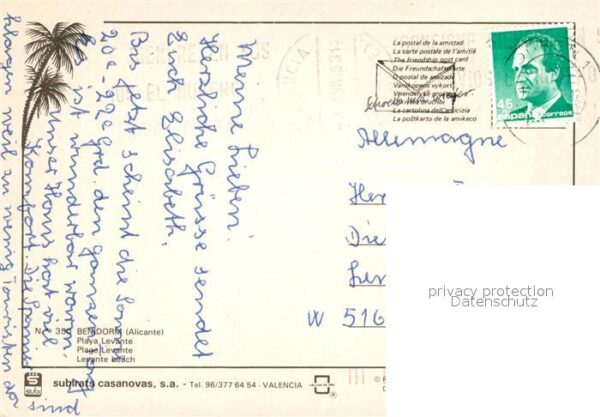 La postal de la amistad
La carte postale de l'amitié
The friendship post card
Die Freundschaftskarte
O postal de amizade
La cartolina dell'amicizia
La poŝtkarto de la amikeco
45
españa correos
Allemagne
Die
W 516
Meine Lieben!
Herzliche Grüsse sendet
Euch Elisabeth.
Bis jetzt scheint die Sonne
20°-22° Grd. den ganzen Tag
Es ist wunderbar warm.
Unser Haus hat viel
Komfort. Die Spanier
klagen weil zu wenig Touristen da
sind
N.° 350 BENIDORM (Alicante)
Playa Levante
Plage Levante
Levante beach
subi
subirats casanovas, s.a. - Tel. 96/377 64 54 - VALENCIA
privacy protection
Datenschutz